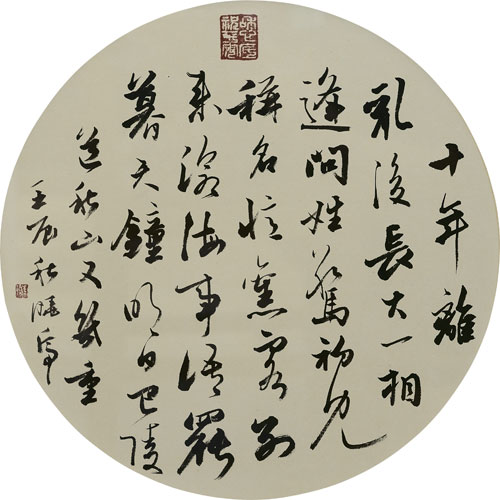 十年離
乱後長大一相
逢問姓驚初見
稱名憶舊容別
来滄海事語罷
暮天鐘明日巴陵
道秋山又幾重
壬辰秋